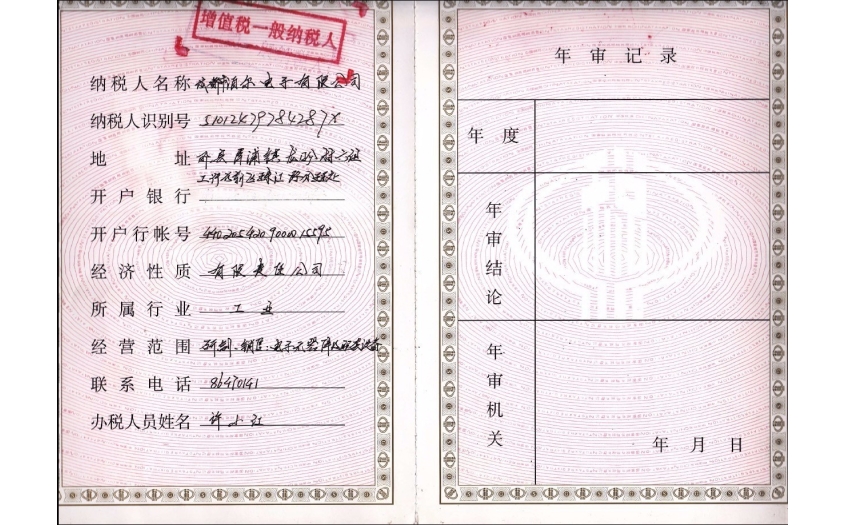 增值税一般纳税人
纳税人名称 成都泊尔电子有限公司
纳税人识别号 51012479784287X
地 址
开户银行 工行
开户行帐号 4402054209000015595
经济性质 有限责任公司
所属行业 工业
经营范围 研制、销售:电子元器件
联系电话 86450141
办税人员姓名 许小红
年审记录
年度
年审结论
年审机关
年 月 日